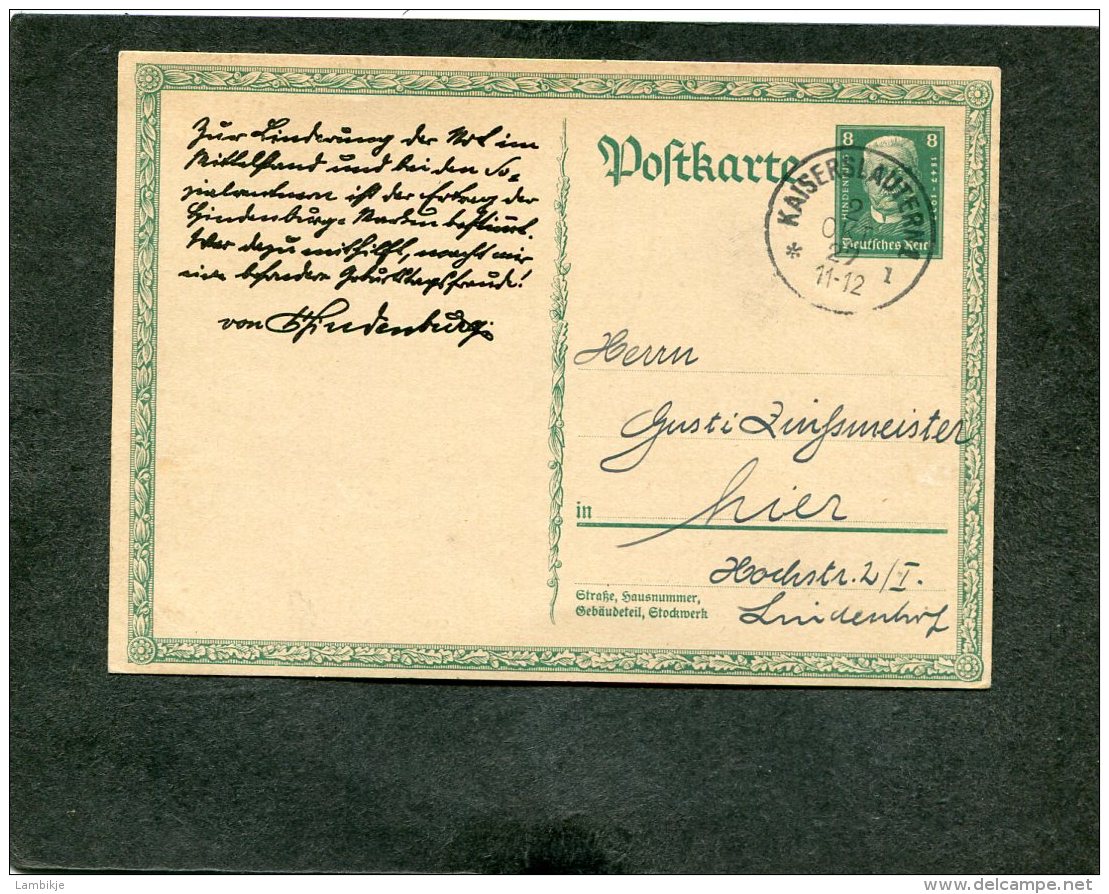 Zur Linderung der Not im
Mittelstand und bei den So-
zialrentnern ist der Ertrag der
Hindenburg-Marken bestimmt.
Wer dazu mithilft, macht mir
eine besondere Geburtstagsfreude!
von Hindenburg.
Postkarte
8 8
HINDENBURG
1847-1927
Deutsches Reich
* KAISERSLAUTERN 1
2
OKT
27
11-12
Herrn
Gusti Zinssmeister
in hier
Hochstr. 2/I.
Lindenhof
Straße, Hausnummer,
Gebäudeteil, Stockwerk
Lambikje
delcampe.net